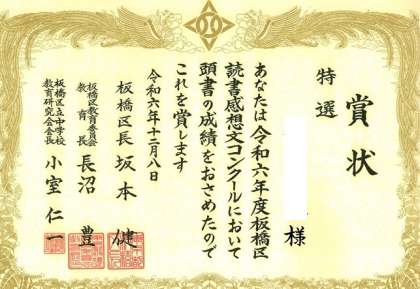 賞状
特選
様
あなたは令和六年度板橋区
読書感想文コンクールにおいて
頭書の成績をおさめたので
これを賞します
令和六年十二月八日
板橋区長 坂本 健
板橋区教育委員会
教育長 長沼 豊
板橋区立中学校
教育研究会会長 小室 仁一